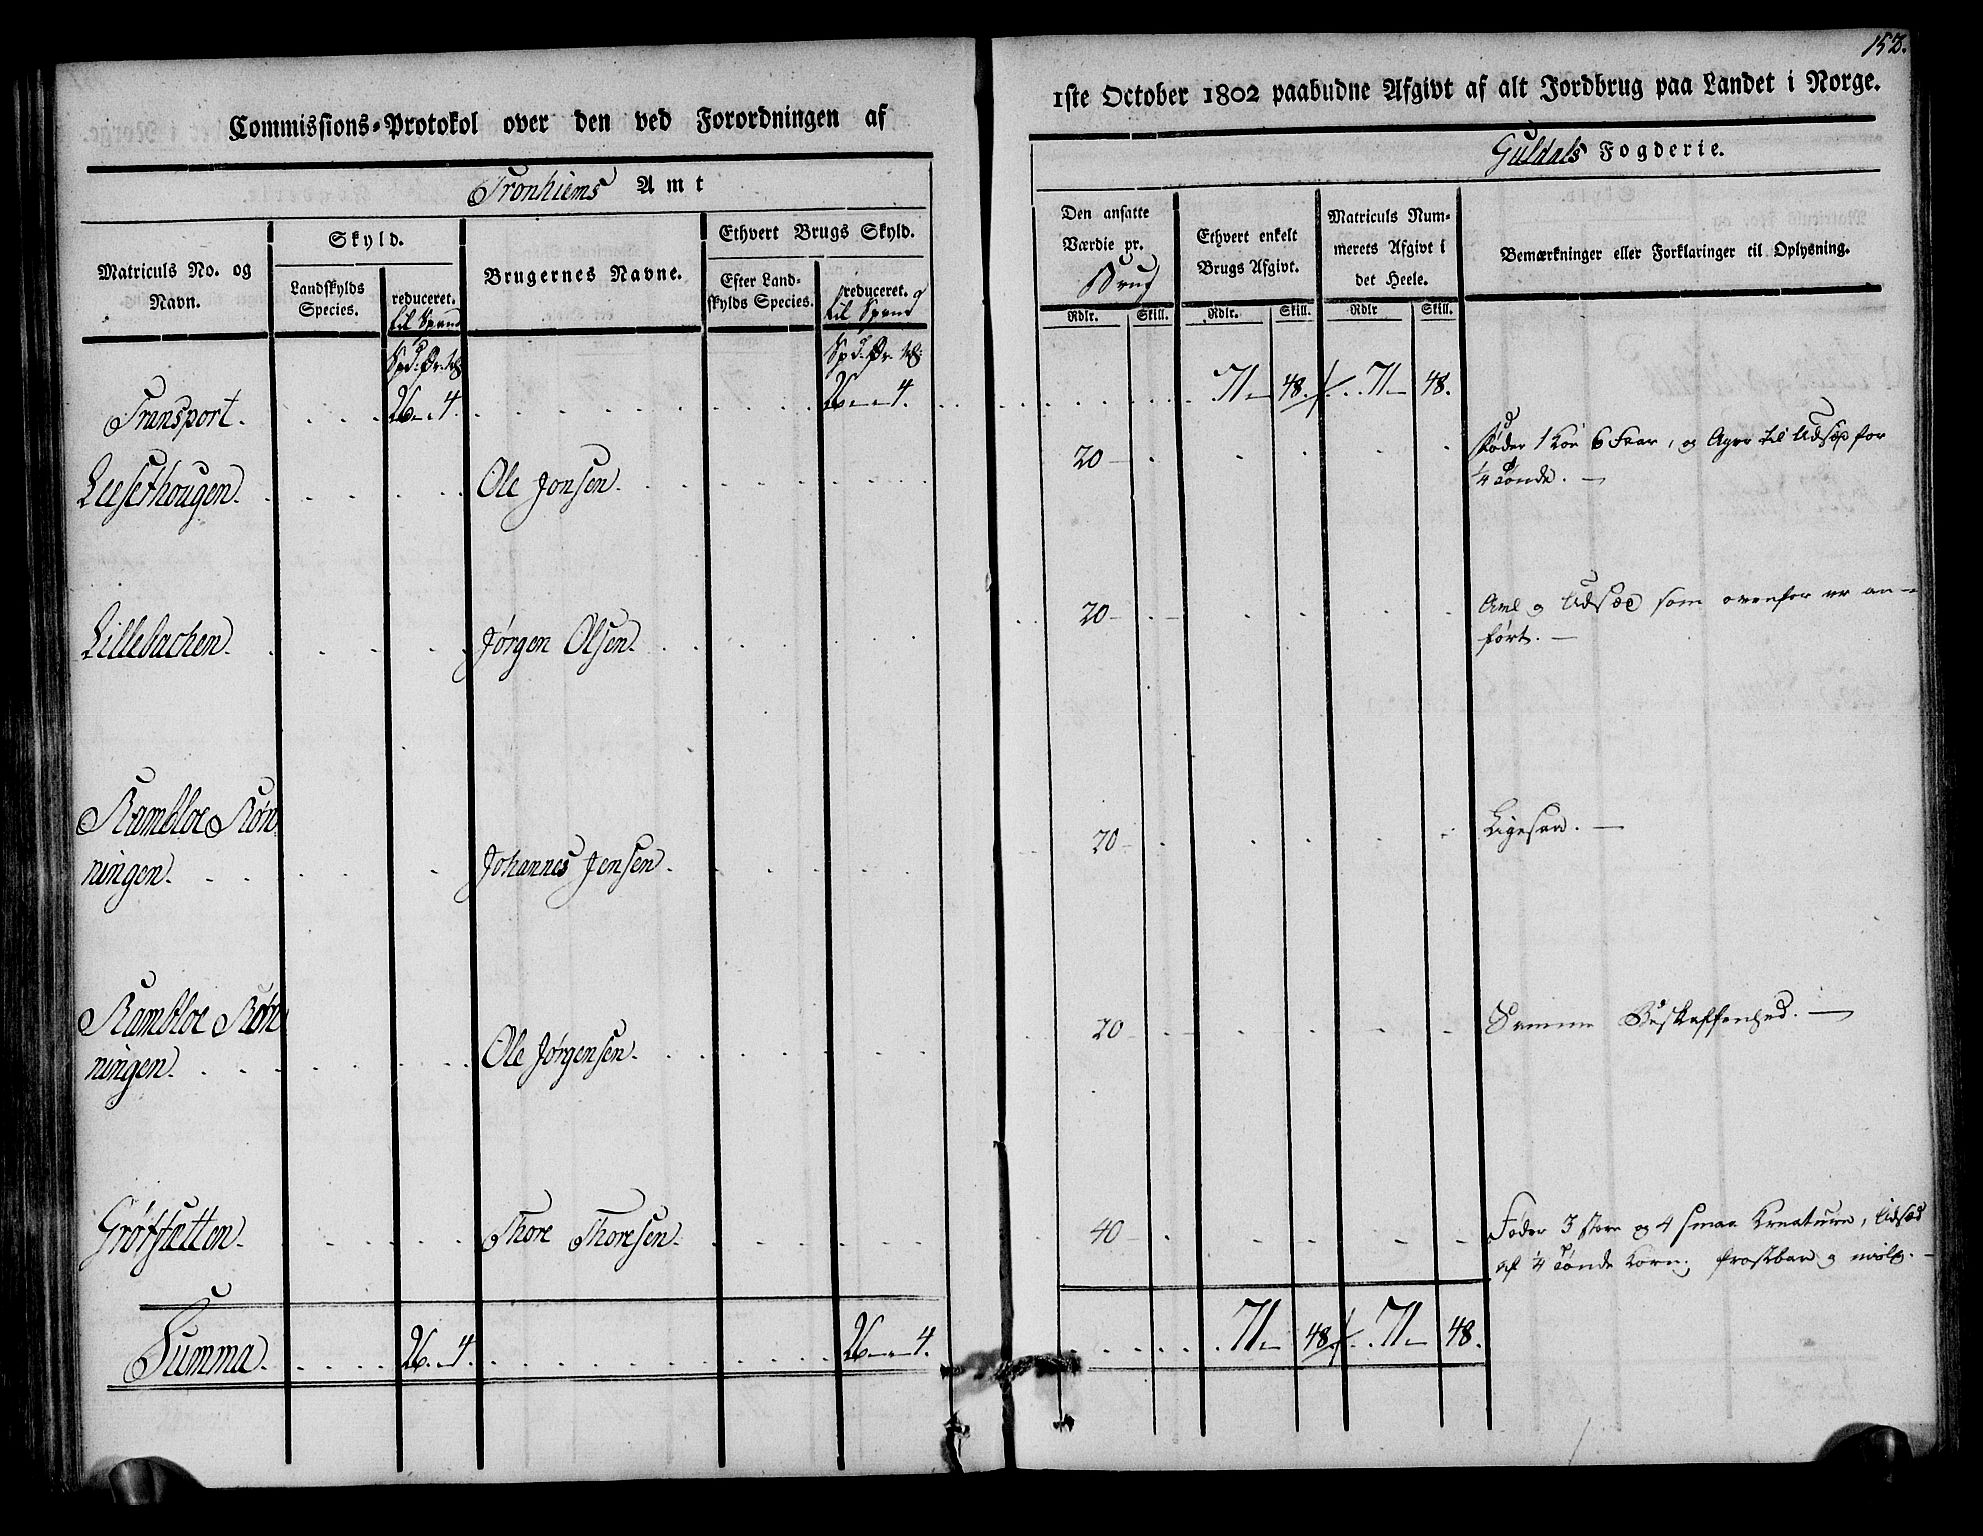 152.
Commissions-Protokol over den ved Forordningen af
1ste October 1802 paabudne Afgivt af alt Jordbrug paa Landet i Norge.
Tronhiems Amt
Guldals Fogderie.
Matriculs No. og Navn.
Skyld.
Landskylds Species.
reduceret. til Spand
Brugernes Navne.
Ethvert Brugs Skyld.
Efter Landskylds Species.
reduceret. til Spand
Den ansatte Værdie pr. Brug
Ethvert enkelt Brugs Afgivt.
Matriculs Nummerets Afgivt i det Heele.
Bemærkninger eller Forklaringer til Oplysning.
Rdlr. Skill. Rdlr. Skill. Rdlr Skill.
Transport. 26 - 4. 26 - 4. 71 - 48. 71 - 48.
Leesethougen. Ole Jonsen. 20 - føder 1 Koe 6 Faar, og Ager til Udsæd for
1/4 Tønde. —
Lillebachen. Jørgen Olsen. 20 - Avl og Udsæd som ovenfor er an-
ført. —
Rambloe Røn
ningen. Johannes Jensen. 20 - Ligesaa. —
Rambloe Røn
ningen. Ole Jørgensen. 20 - Samme Beskaffenhed. —
Grøtfatten. Thore Thoresen. 40 - Føder 3 store og 4 smaa Kreature, Udsæd
af 1/4 Tønde Korn;
Summa. 26 - 4. 26 - 4. 71 - 48. 71 - 48.